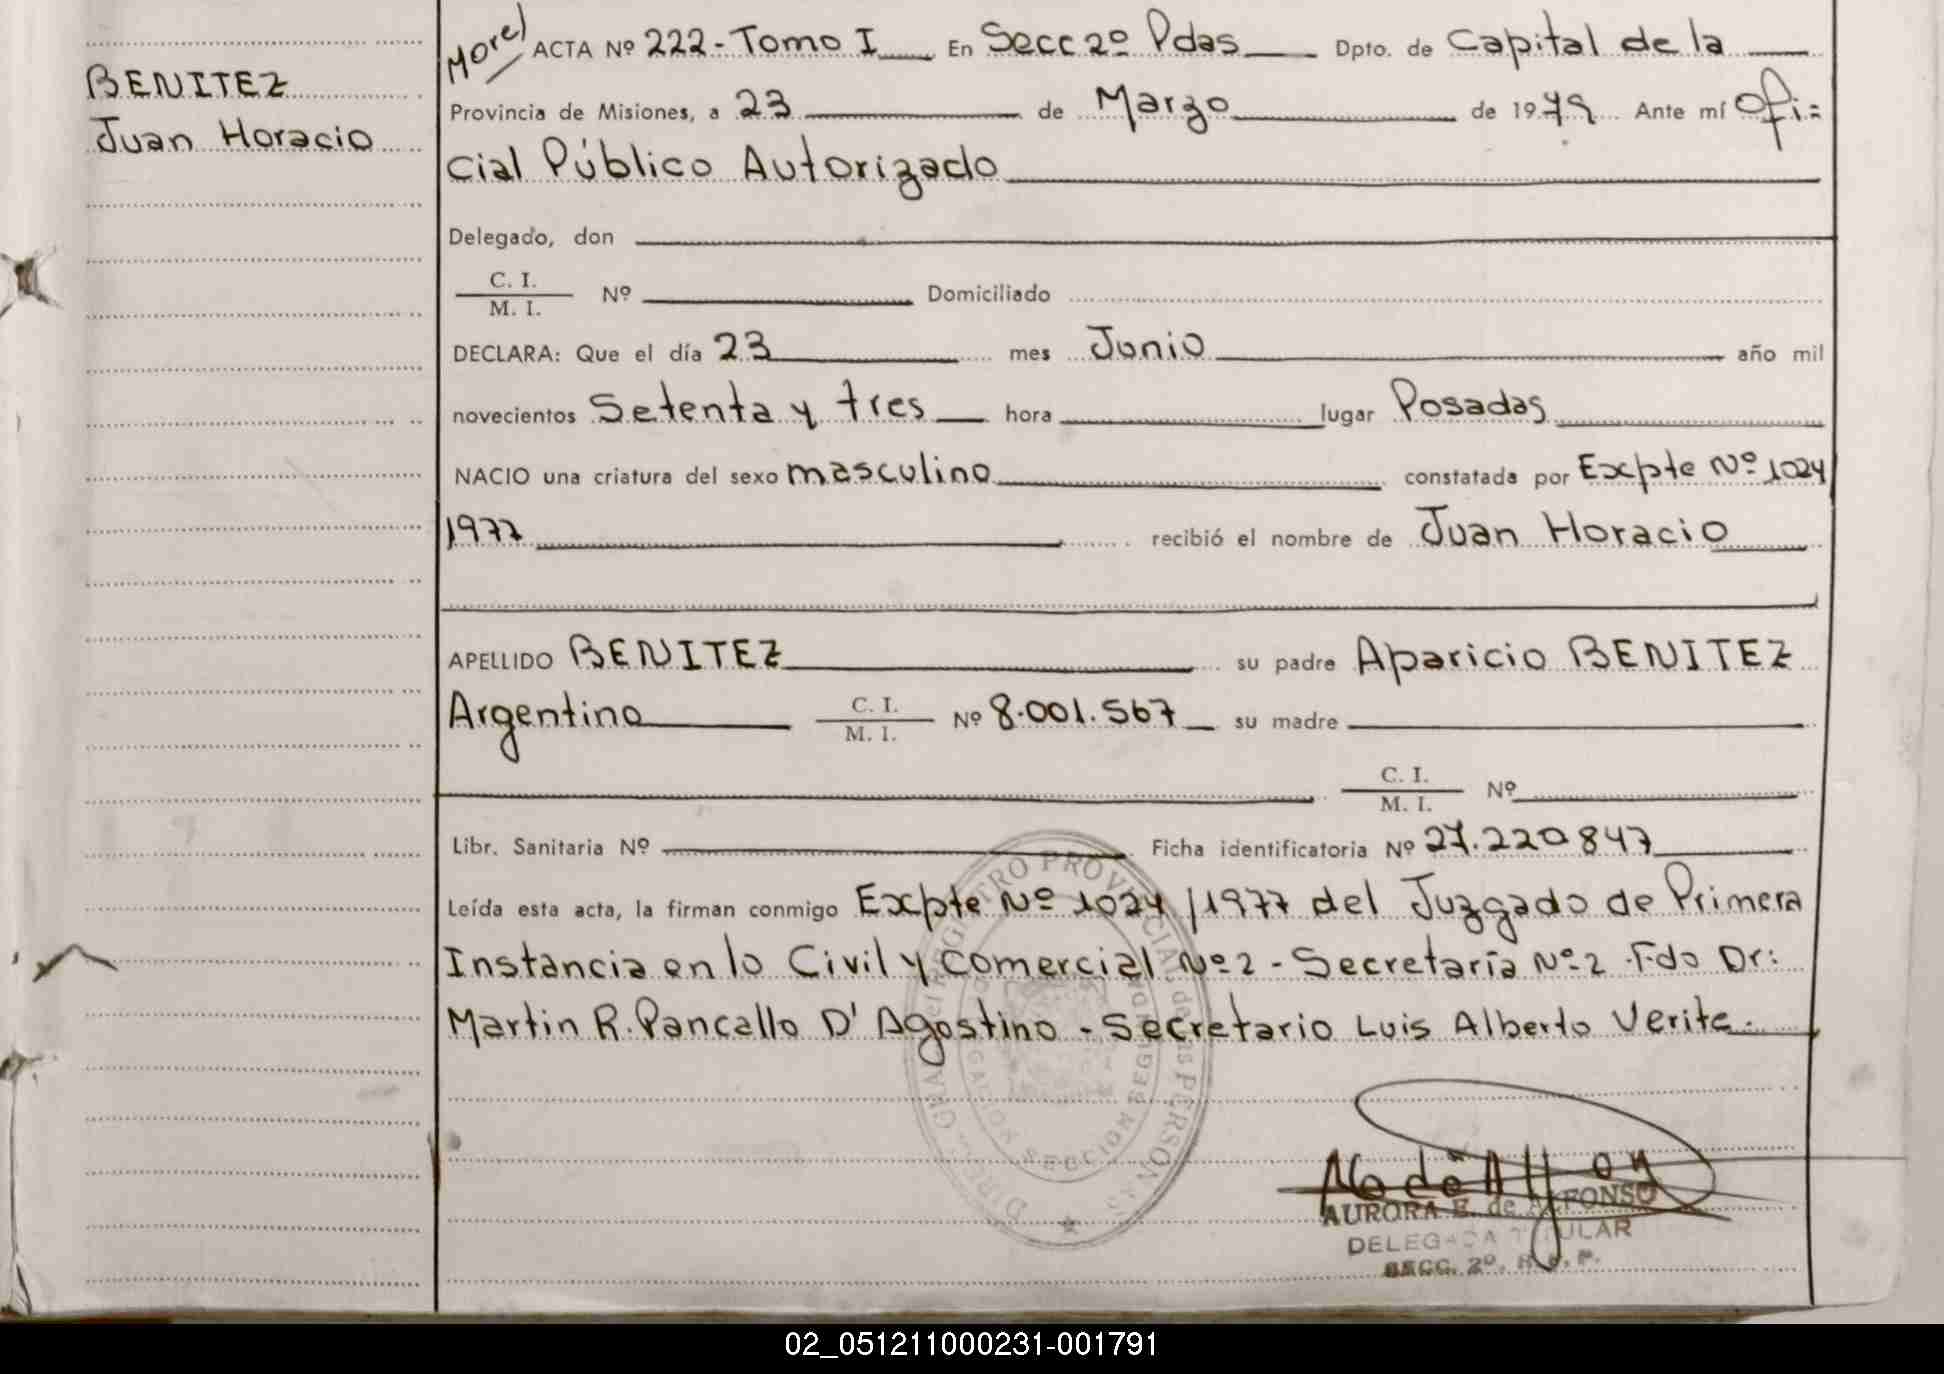 BENITEZ
Juan Horacio
Morel ACTA Nº 222-Tomo I En Secc 2º Pdas Dpto. de Capital de la
Provincia de Misiones, a 23 de Marzo de 1979 Ante mí Ofi=
cial Público Autorizado
Delegado, don
C. I.
M. I. Nº Domiciliado
DECLARA: Que el día 23 mes Junio año mil
novecientos Setenta y tres hora lugar Posadas
NACIO una criatura del sexo masculino constatada por Expte Nº 1024
1977 recibió el nombre de Juan Horacio
APELLIDO BENITEZ su padre Aparicio BENITEZ
Argentino C. I. M. I. Nº 8.001.567 su madre
C. I.
M. I. Nº
Libr. Sanitaria Nº Ficha identificatoria Nº 27.220847
Leída esta acta, la firman conmigo Expte Nº 1024/1977 del Juzgado de Primera
Instancia en lo Civil y Comercial Nº 2 - Secretaría Nº 2 Fdo Dr:
Martin R. Pancallo D' Agostino - Secretario Luis Alberto Verite.
REGISTRO PROVINCIAL de las PERSONAS
SECCION SEGUNDA
AURORA E. de ALFONSO
DELEGADA TITULAR
SECC. 2º. R. P. P.
02_051211000231-001791